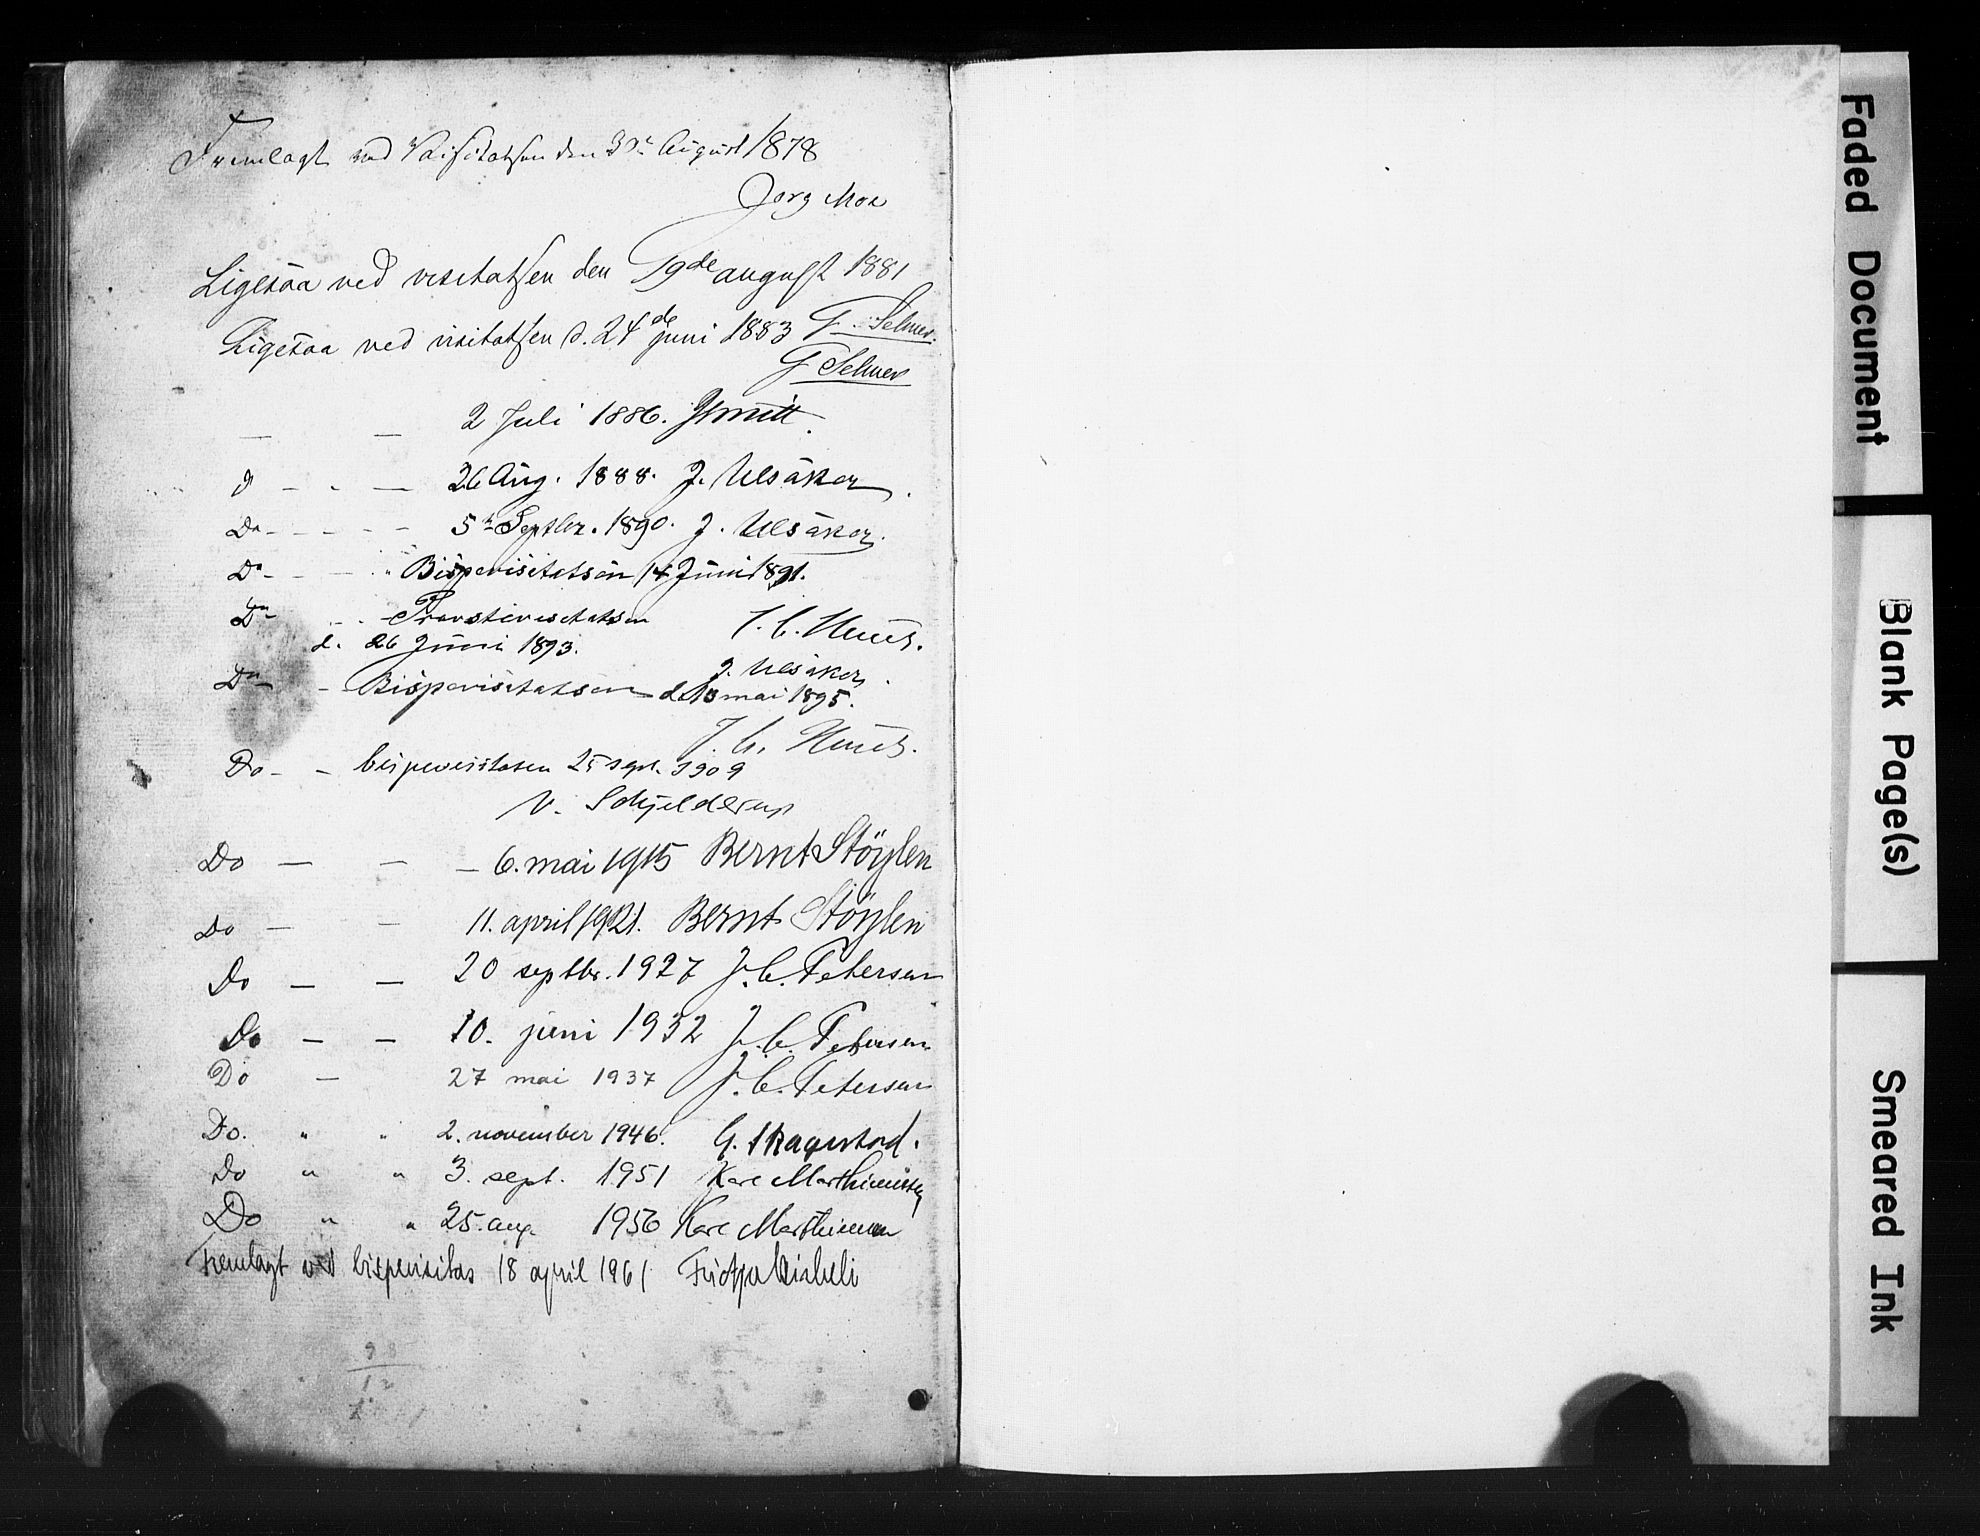 Fremlagt ved Visitatsen den 3die August 1878
Jørg Moe
Ligesaa ved visitatsen den 19de august 1881
F. Selmer.
Ligesaa ved visitatsen d. 24de juni 1883
F Selmer
— — 2 Juli 1886. JSmitt.
D — - — 26 Aug. 1888. J. Ulsåker.
Do - - - - 5te Septbr. 1890. J. Ulsåker.
Do - - - " Bispevisitatsen 14 Juni 1891.
J. C. Heuch.
Do - - Provstevisitatsen
d. 26 Juni 1893.
J. Ulsåker.
Do - Bispevisitatsen d. 10 mai 1895.
J. C. Heuch.
Do - - bispevisitatsen 25 sept. 1909
V. Schjelderup
Do — — — 6. mai 1915 Bernt Støylen
Do — — 11. april 1921. Bernt Støylen
Do — — 20 septbr. 1927 J. C. Petersen
Do — — 10. juni 1932 J. C. Petersen
Do — 27 mai 1937 J. C. Petersen
Do. " " 2. november 1946. G. Skagestad.
Do " " 3. sept. 1951 Kaare Marthinussen
Do " " 25. aug. 1956 Kare Marthinussen
Fremlagt ved bispevisitas 18 april 1961 Fridtjov Birkeli
98
12
Faded Document
Blank Page(s)
Smeared Ink